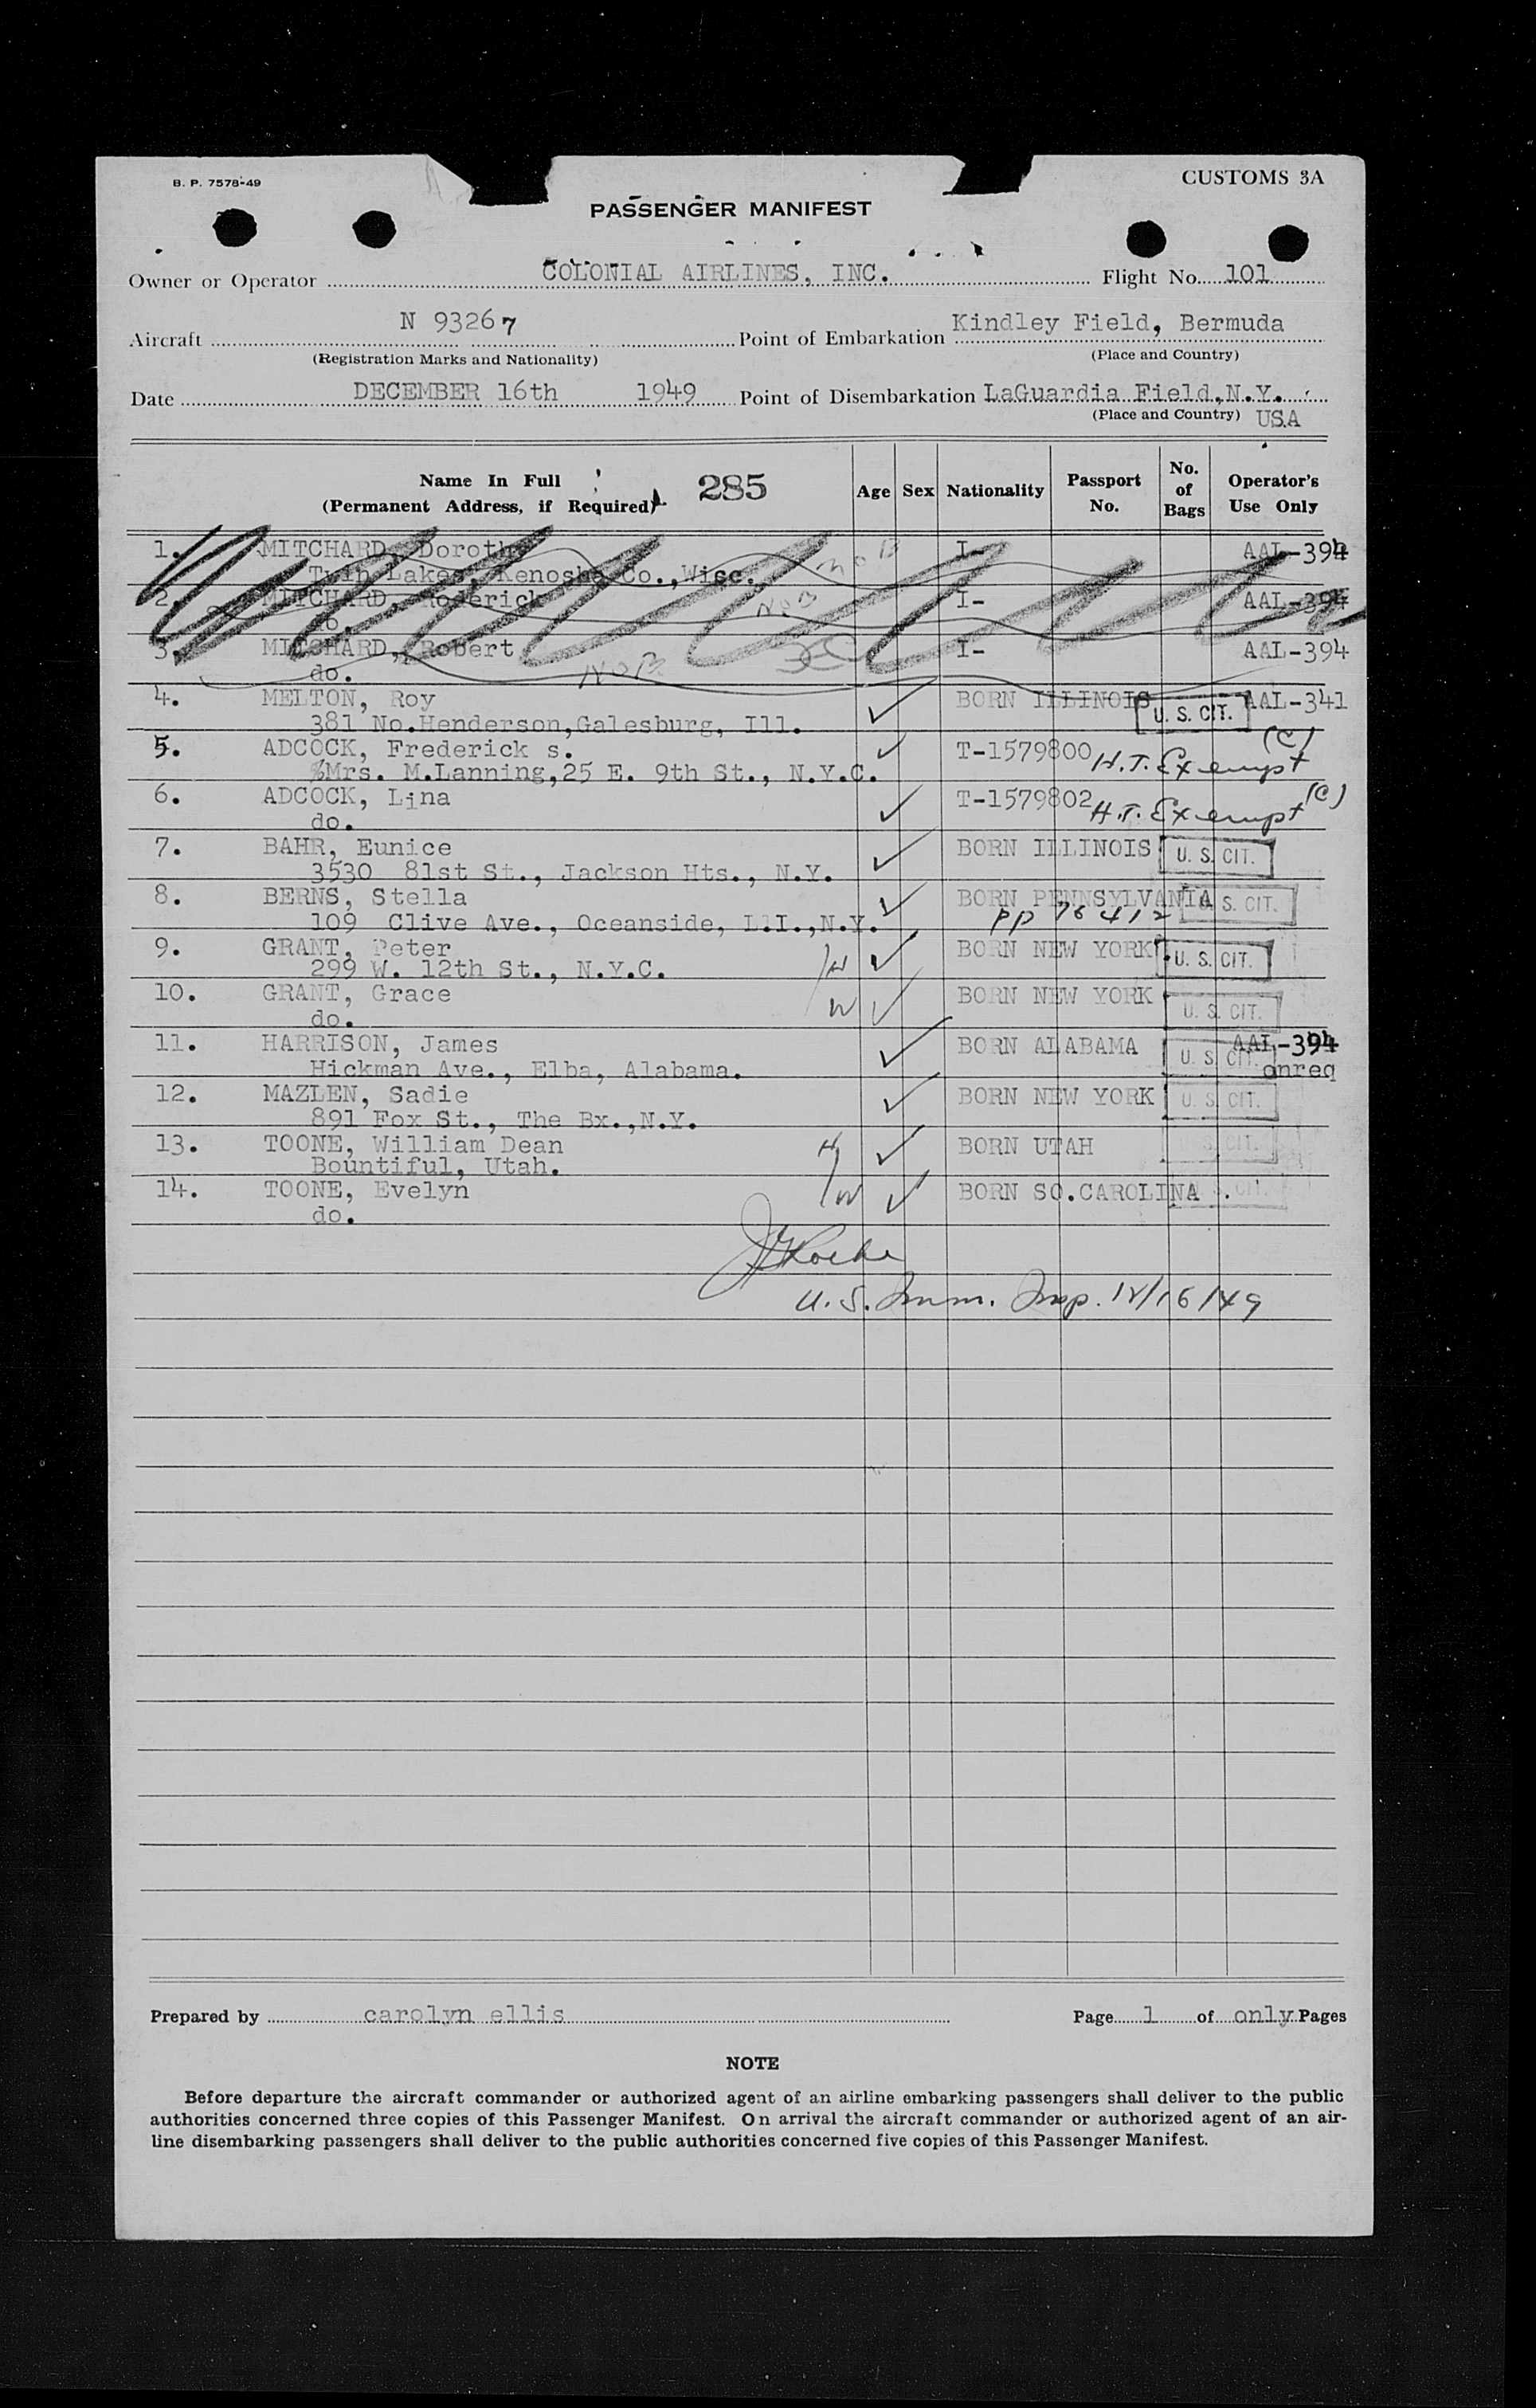 B. P. 7578-49
CUSTOMS 3A
PASSENGER MANIFEST
Owner or Operator COLONIAL AIRLINES, INC. Flight No. 101
Aircraft N 93267 Point of Embarkation Kindley Field, Bermuda
(Registration Marks and Nationality) (Place and Country)
Date DECEMBER 16th 1949 Point of Disembarkation LaGuardia Field, N.Y.
(Place and Country) USA
Name In Full 285 Age Sex Nationality Passport No. No. of Bags Operator's Use Only
(Permanent Address, if Required)
1. MITCHARD, Dorothy NOB I- AAL-394
Twin Lakes, Kenosha Co.,Wisc.
2. MITCHARD, Roderick NOB I- AAL-394
do.
3. MITCHARD, Robert I- AAL-394
do. NOB
4. MELTON, Roy BORN ILLINOIS U. S. CIT. AAL-341
381 No.Henderson,Galesburg, Ill.
5. ADCOCK, Frederick s. T-1579800 H.T. Exempt (C)
%Mrs. M.Lanning,25 E. 9th St., N.Y.C.
6. ADCOCK, Lina T-1579802 H.T. Exempt (C)
do.
7. BAHR, Eunice BORN ILLINOIS U. S. CIT.
3530 81st St., Jackson Hts., N.Y.
8. BERNS, Stella BORN PENNSYLVANIA U. S. CIT.
109 Clive Ave., Oceanside, L.I.,N.Y. PP 76412
9. GRANT, Peter H BORN NEW YORK U. S. CIT.
299 W. 12th St., N.Y.C.
10. GRANT, Grace W BORN NEW YORK U. S. CIT.
do.
11. HARRISON, James BORN ALABAMA U. S. CIT. AAL-394
Hickman Ave., Elba, Alabama. onreq
12. MAZLEN, Sadie BORN NEW YORK U. S. CIT.
891 Fox St., The Bx.,N.Y.
13. TOONE, William Dean H BORN UTAH S. CIT.
Bountiful, Utah.
14. TOONE, Evelyn W BORN SO.CAROLINA . S. CIT.
do.
U. S. Imm. Insp. 12/16/49
Prepared by carolyn ellis Page 1 of only Pages
NOTE
Before departure the aircraft commander or authorized agent of an airline embarking passengers shall deliver to the public
authorities concerned three copies of this Passenger Manifest. On arrival the aircraft commander or authorized agent of an air-
line disembarking passengers shall deliver to the public authorities concerned five copies of this Passenger Manifest.